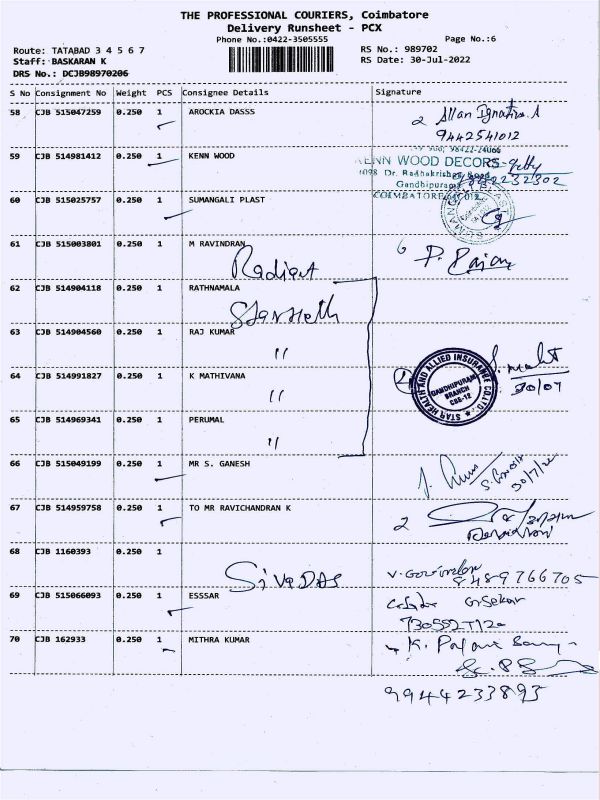 THE PROFESSIONAL COURIERS, Coimbatore
Delivery Runsheet - PCX
Phone No.:0422-3505555
Page No.:6
Route: TATABAD 3 4 5 6 7
RS No.: 989702
Staff: BASKARAN K
RS Date: 30-Jul-2022
DRS No.: DCJB98970206
S No Consignment No Weight PCS Consignee Details Signature
58 CJB 515047259 0.250 1 AROCKIA DASSS
9442541012
59 CJB 514981412 0.250 1 KENN WOOD
KENN WOOD DECORS
Gandhipuram
60 CJB 515025757 0.250 1 SUMANGALI PLAST
61 CJB 515003801 0.250 1 M RAVINDRAN
Radiant
62 CJB 514904118 0.250 1 RATHNAMALA
Star Health
63 CJB 514904560 0.250 1 RAJ KUMAR
"
64 CJB 514991827 0.250 1 K MATHIVANA
"
STAR HEALTH AND ALLIED INSURANCE CO.LTD
GANDHIPURAM
BRANCH
CBE-12
30/07
65 CJB 514969341 0.250 1 PERUMAL
"
66 CJB 515049199 0.250 1 MR S. GANESH
67 CJB 514959758 0.250 1 TO MR RAVICHANDRAN K
2
68 CJB 1160393 0.250 1
SivaDAS
8489766705
69 CJB 515066093 0.250 1 ESSSAR
70 CJB 162933 0.250 1 MITHRA KUMAR
9944233893